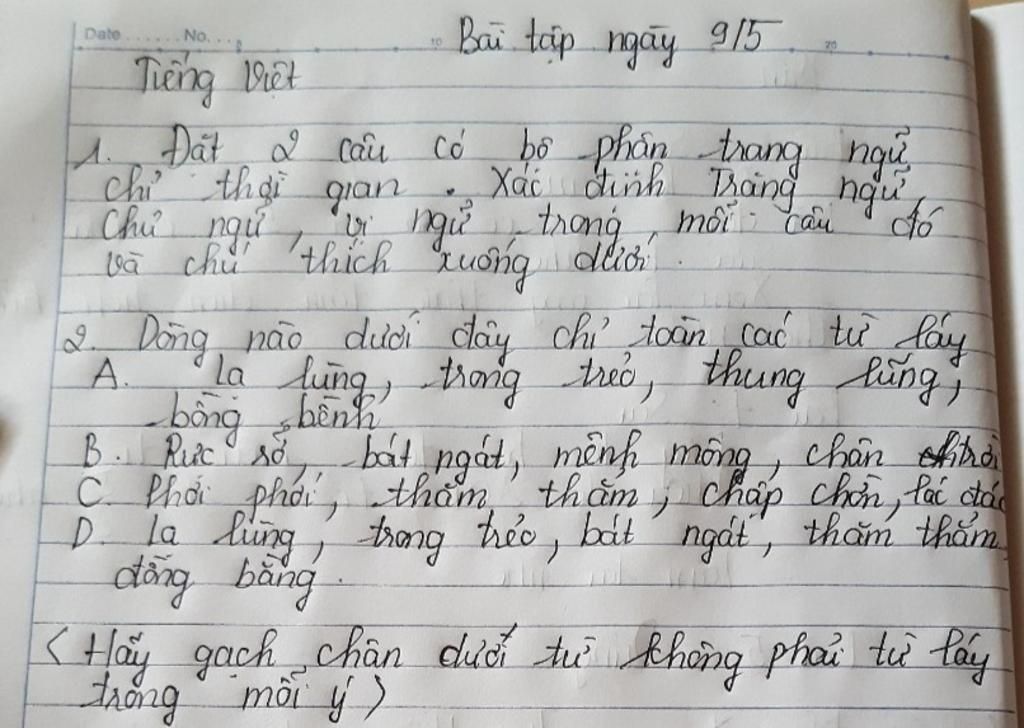 Date ...... No. ...
Bài tập ngày 9/5
Tiếng Việt
1. Đặt 2 câu có bộ phận trạng ngữ
chỉ thời gian. Xác định Trạng ngữ,
Chủ ngữ, vị ngữ trong mỗi câu đó
và chú thích xuống dưới.
2. Dòng nào dưới đây chỉ toàn các từ láy
A. Lạ lùng, trong trẻo, thung lũng,
bồng bềnh
B. Rực rỡ, bát ngát, mênh mông, chân trời
C. Phơi phới, thăm thẳm, chấp chới, lác đác
D. Lạ lùng, trong trẻo, bát ngát, thăm thẳm
đồng bằng.
(Hãy gạch chân dưới từ không phải từ láy
trong mỗi ý)